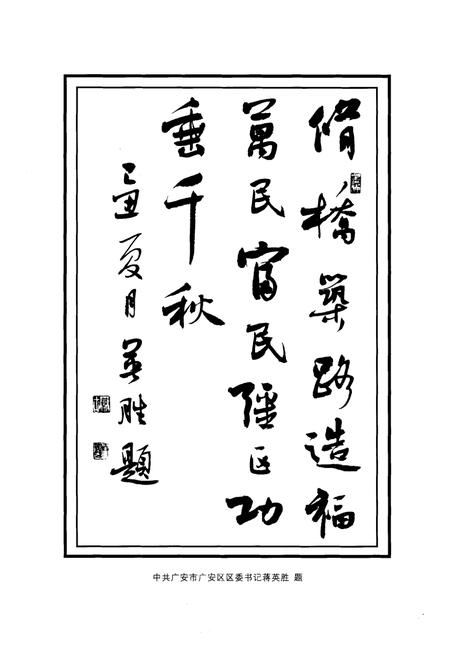 脩橋築路造福
萬民富民彊区功
垂千秋
己丑夏月英胜題
中共广安市广安区区委书记蒋英胜 题